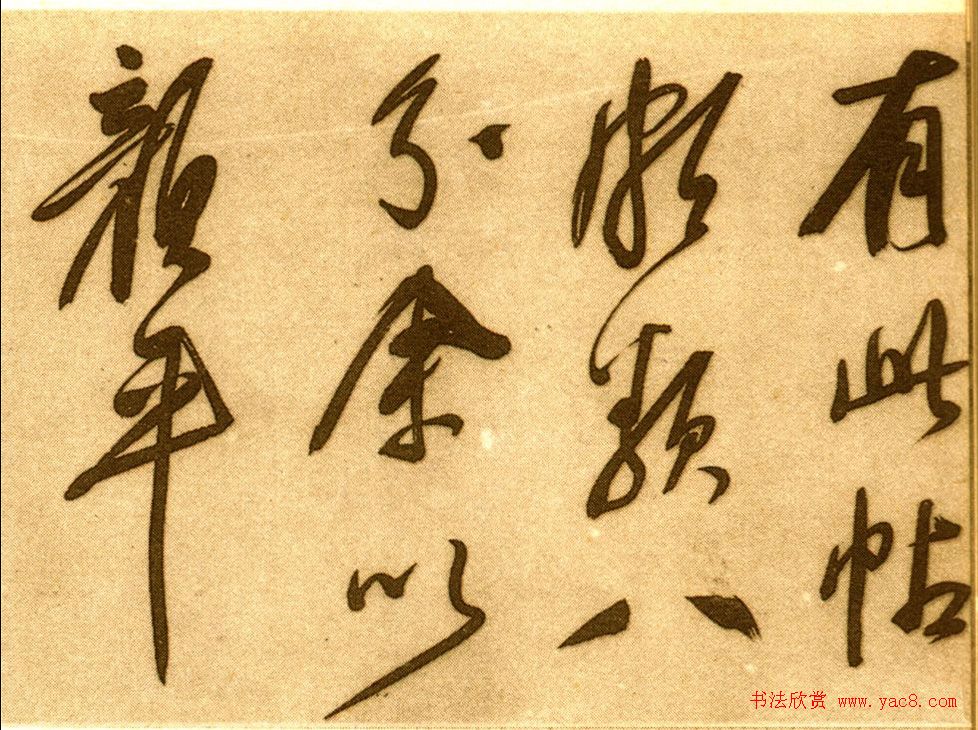 有此帖
頗類八
分余以
年
书法欣赏 www.yac8.com